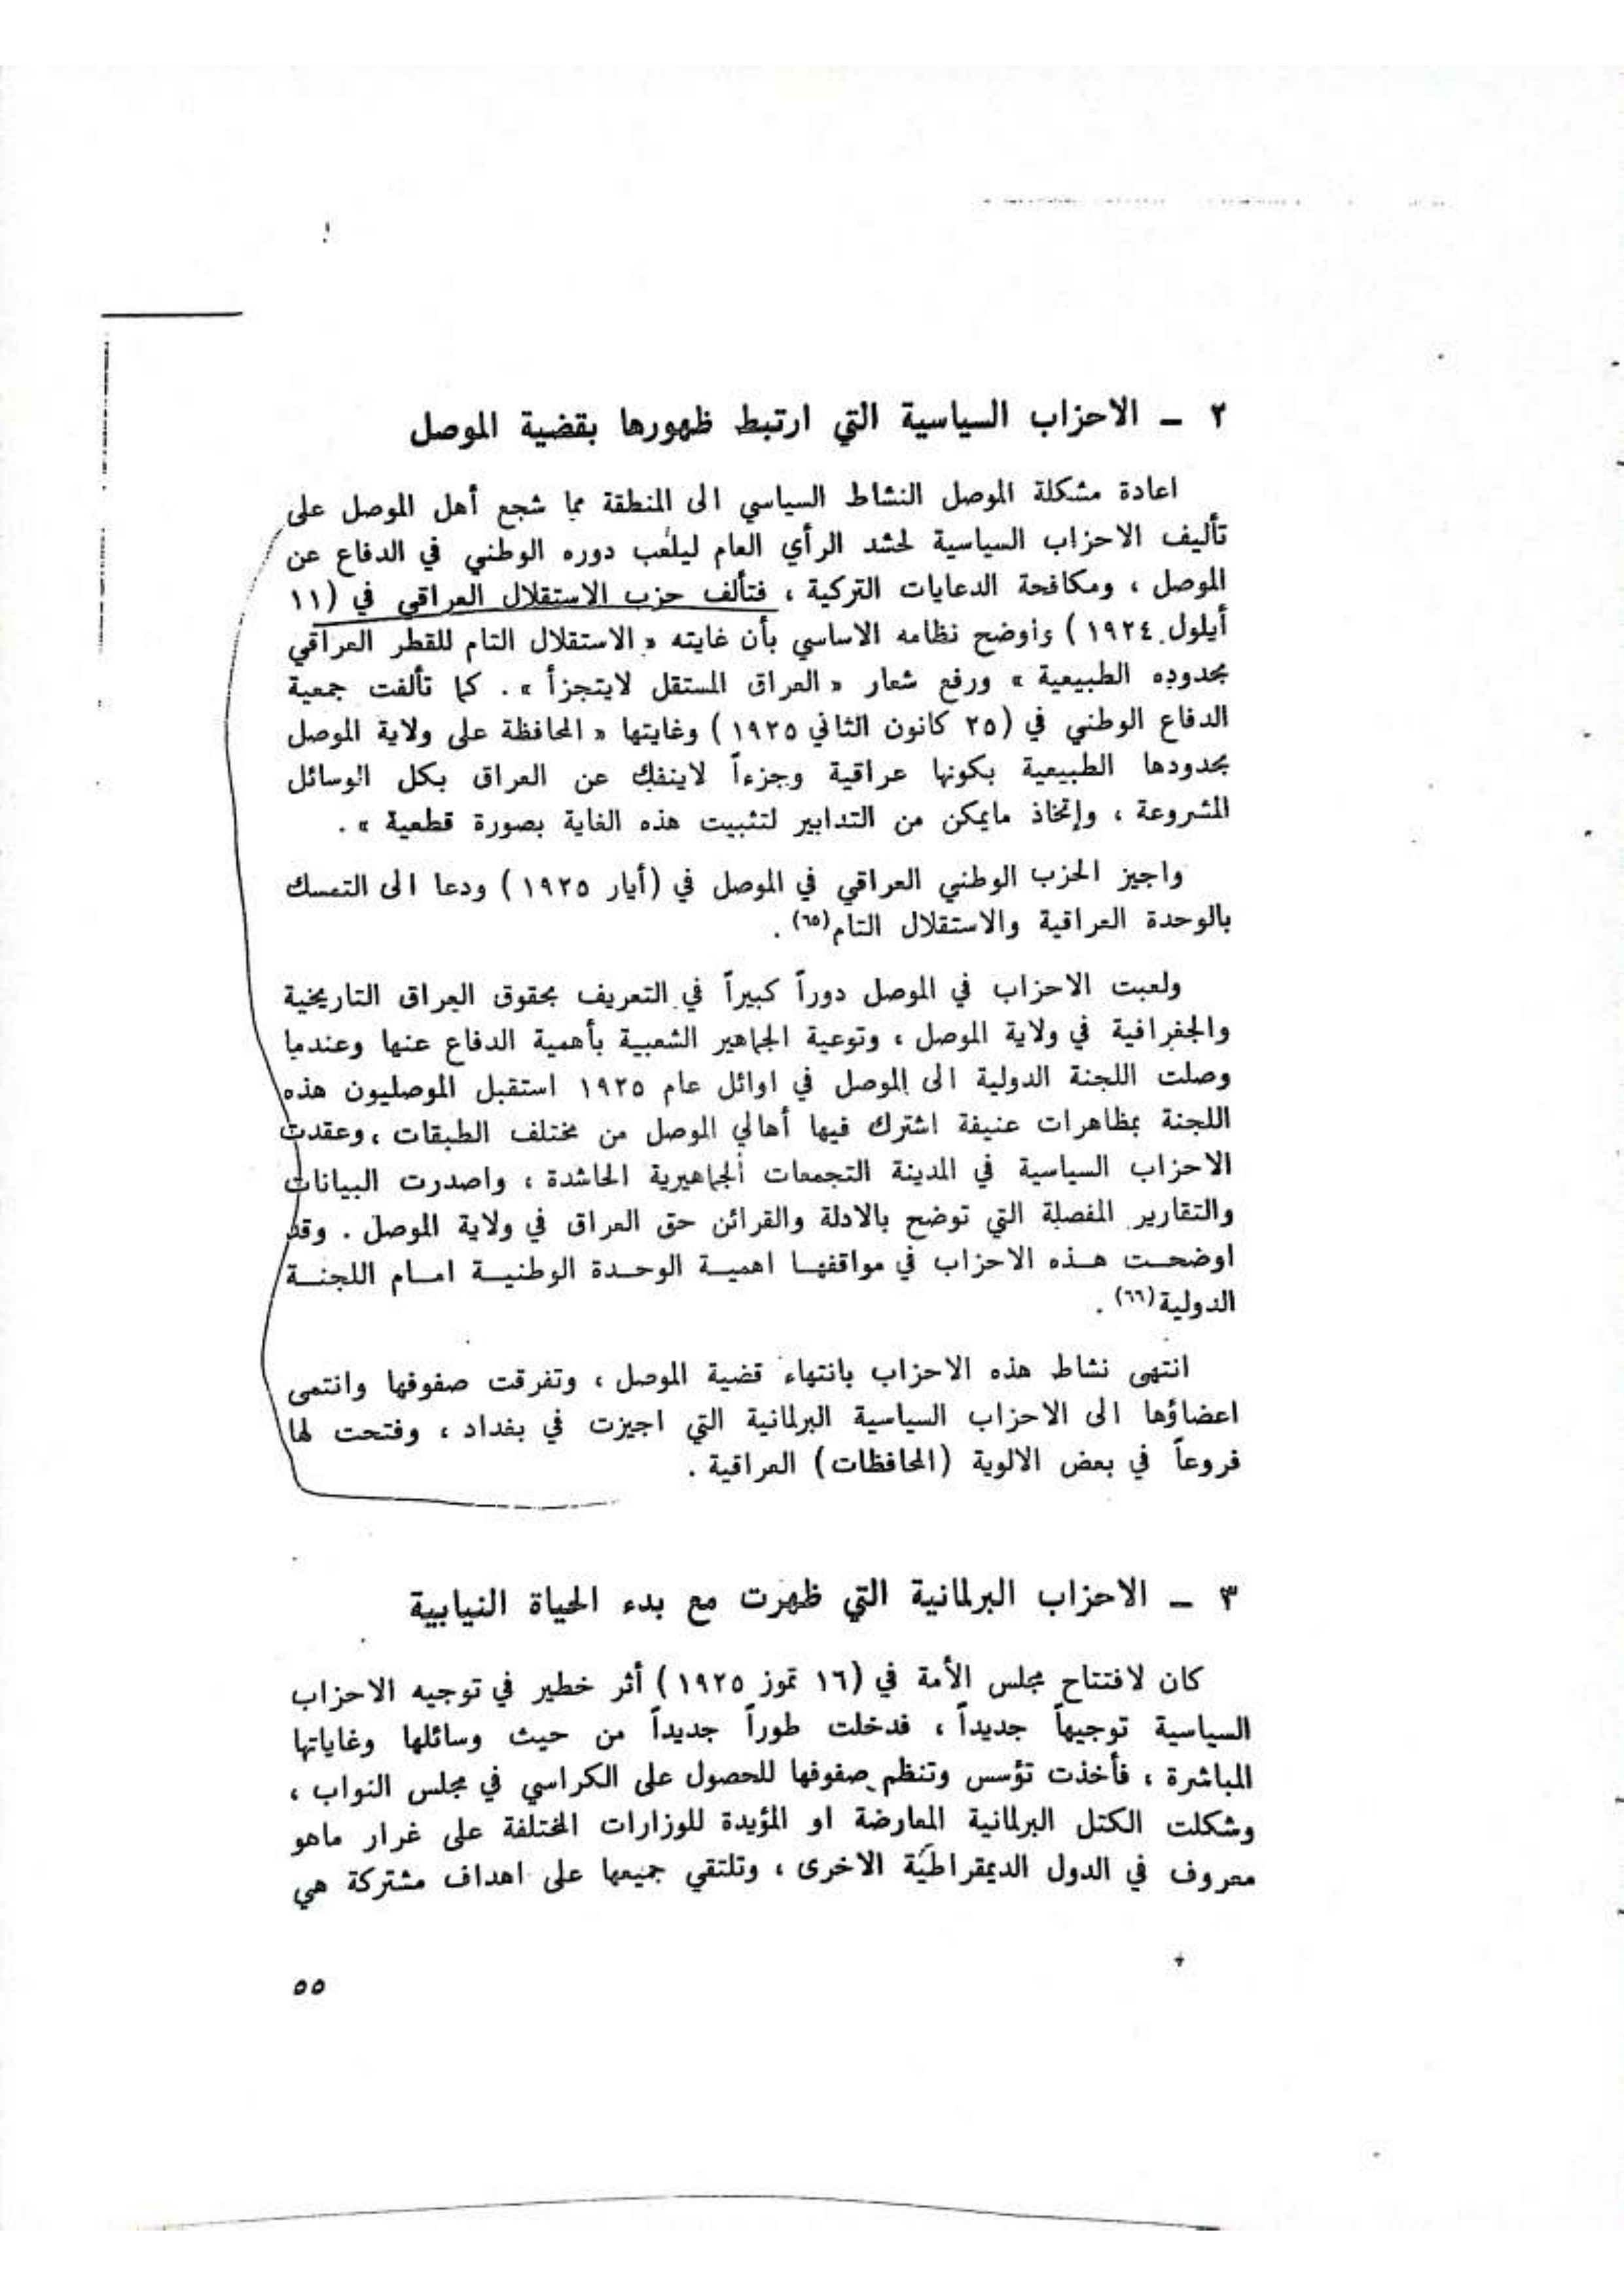 ٢ ـ الاحزاب السياسية التي ارتبط ظهورها بقضية الموصل
اعادة مشكلة الموصل النشاط السياسي الى المنطقة مما شجع أهل الموصل على
تأليف الاحزاب السياسية لحشد الرأي العام ليلعب دوره الوطني في الدفاع عن
الموصل ، ومكافحة الدعايات التركية ، فتألف حزب الاستقلال العراقي في (١١
أيلول ١٩٢٤) واوضح نظامه الاساسي بأن غايته « الاستقلال التام للقطر العراقي
بحدوده الطبيعية » ورفع شعار « العراق المستقل لايتجزأ » . كما تألفت جمعية
الدفاع الوطني في (٢٥ كانون الثاني ١٩٢٥) وغايتها « المحافظة على ولاية الموصل
بحدودها الطبيعية بكونها عراقية وجزءاً لاينفك عن العراق بكل الوسائل
المشروعة ، وإتخاذ مايمكن من التدابير لتثبيت هذه الغاية بصورة قطعية » .
واجيز الحزب الوطني العراقي في الموصل في (أيار ١٩٢٥) ودعا الى التمسك
بالوحدة العراقية والاستقلال التام(٦٥) .
ولعبت الاحزاب في الموصل دوراً كبيراً في التعريف بحقوق العراق التاريخية
والجغرافية في ولاية الموصل ، وتوعية الجماهير الشعبية بأهمية الدفاع عنها وعندما
وصلت اللجنة الدولية الى الموصل في اوائل عام ١٩٢٥ استقبل الموصليون هذه
اللجنة بمظاهرات عنيفة اشترك فيها أهالي الموصل من مختلف الطبقات ، وعقدت
الاحزاب السياسية في المدينة التجمعات الجماهيرية الحاشدة ، واصدرت البيانات
والتقارير المفصلة التي توضح بالادلة والقرائن حق العراق في ولاية الموصل . وقد
اوضحت هذه الاحزاب في مواقفها اهمية الوحدة الوطنية امام اللجنة
الدولية(٦٦) .
انتهى نشاط هذه الاحزاب بانتهاء قضية الموصل ، وتفرقت صفوفها وانتمى
اعضاؤها الى الاحزاب السياسية البرلمانية التي اجيزت في بغداد ، وفتحت لها
فروعاً في بعض الالوية (المحافظات) العراقية .
٣ ـ الاحزاب البرلمانية التي ظهرت مع بدء الحياة النيابية
كان لافتتاح مجلس الأمة في (١٦ تموز ١٩٢٥) أثر خطير في توجيه الاحزاب
السياسية توجيهاً جديداً ، فدخلت طوراً جديداً من حيث وسائلها وغاياتها
المباشرة ، فأخذت تؤسس وتنظم صفوفها للحصول على الكراسي في مجلس النواب ،
وشكلت الكتل البرلمانية المعارضة او المؤيدة للوزارات المختلفة على غرار ماهو
معروف في الدول الديمقراطية الاخرى ، وتلتقي جميعها على اهداف مشتركة هي
٥٥